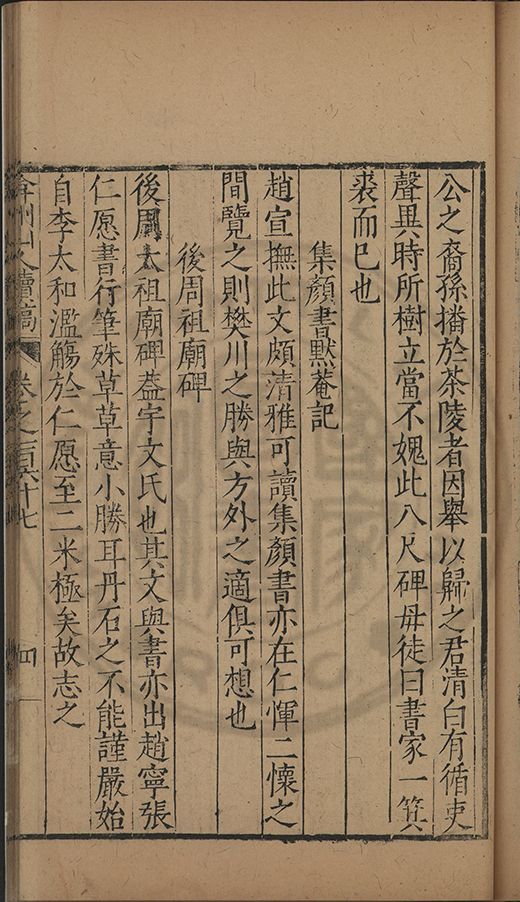 公之裔孫播於茶陵者因舉以歸之君清白有循吏
聲異時所樹立當不媿此八尺碑毋徒曰書家一箕
裘而已也
集顏書默菴記
趙宣撫此文頗清雅可讀集顏書亦在仁惲二懷之
間覽之則樊川之勝與方外之適俱可想也
後周祖廟碑
後周太祖廟碑葢宇文氏也其文與書亦出趙寧張
仁愿書行筆殊草草意小勝耳丹石之不能謹嚴始
自李太和濫觴於仁愿至二米極矣故志之
弇州山人續稿 卷之一百六十七 四